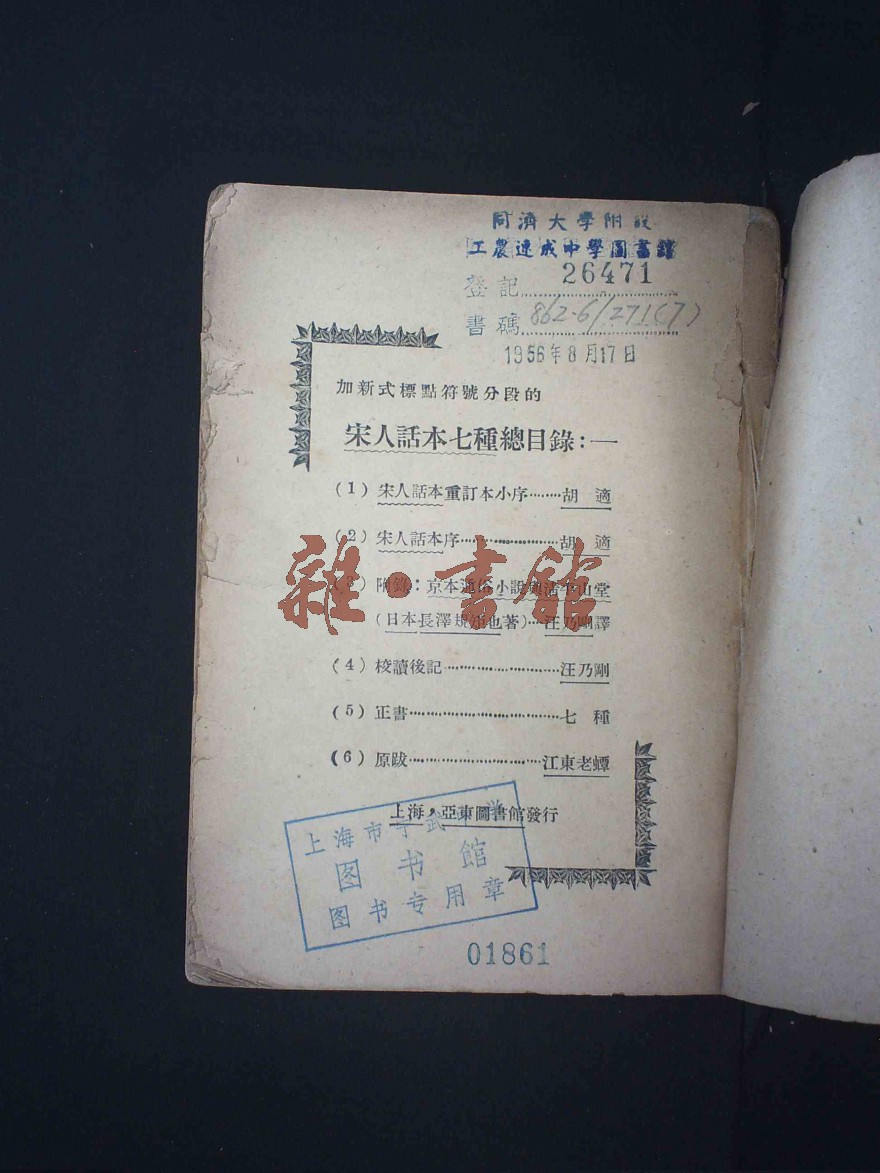 同濟大學附設
工農速成中學圖書館
登記 26471
書碼 862·6/271(7)
1956年8月17日
加新式標點符號分段的
宋人話本七種總目錄：—
(1) 宋人話本重訂本小序………胡適
(2) 宋人話本序………胡適
(3) 附錄：京本通俗小說與清平山堂
(日本長澤規矩也著)…汪乃剛譯
(4) 校讀後記………汪乃剛
(5) 正書………七種
(6) 原跋………江東老蟫
上海，亞東圖書館發行
上海市 武中学
图书馆
图书专用章
01861
雜·書館